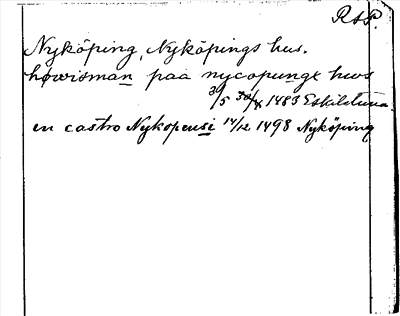 RAP.
Nyköping, Nyköpings hus.
høwisman paa nycopunge hws
3/5 30/x 1483 Eskilstuna.
en castro Nykopensi 14/12 1498 Nyköping